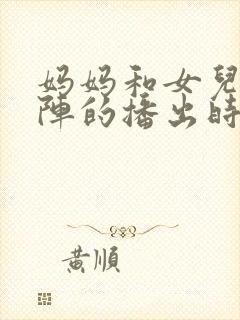 妈妈和女兒
陣的播出時
黃順